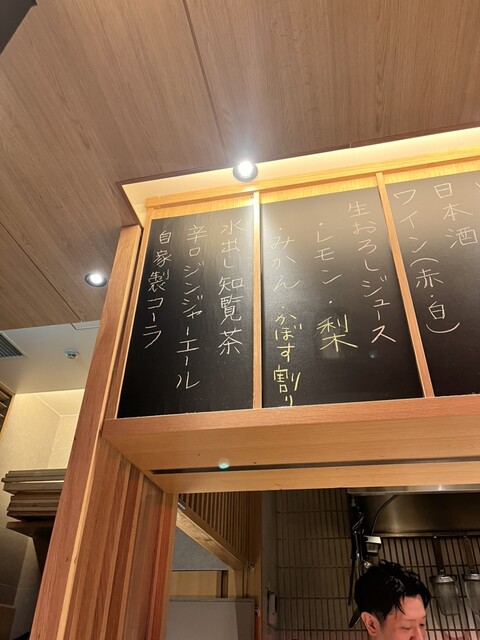 日本酒
ワイン(赤・白)
生おろしジュース
・レモン・梨
・みかん・かぼす割り
水出し知覧茶
辛口ジンジャーエール
自家製コーラ